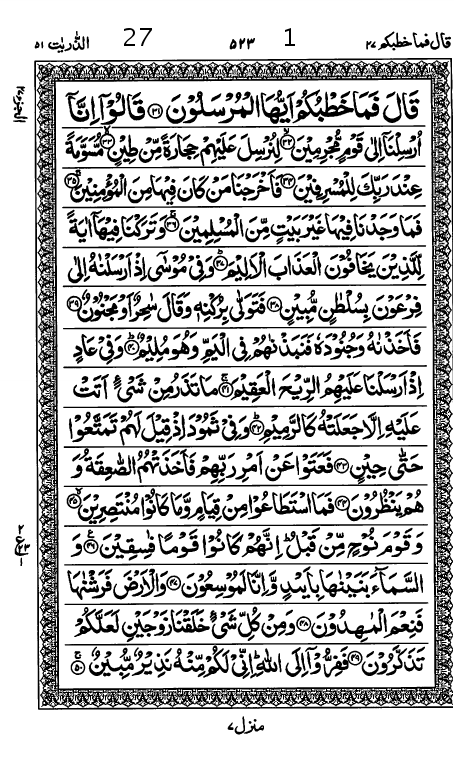 قال فما خطبكم ٢٧ 1 ٥٢٣ 27 الذّٰريٰت ٥١
قَالَ فَمَا خَطْبُكُمْ اَيُّهَا الْمُرْسَلُوْنَ ﴿٣١﴾ قَالُوْٓا اِنَّآ
اُرْسِلْنَآ اِلٰى قَوْمٍ مُّجْرِمِيْنَ ﴿٣٢﴾ لِنُرْسِلَ عَلَيْهِمْ حِجَارَةً مِّنْ طِيْنٍ ﴿٣٣﴾ مُّسَوَّمَةً
عِنْدَ رَبِّكَ لِلْمُسْرِفِيْنَ ﴿٣٤﴾ فَاَخْرَجْنَا مَنْ كَانَ فِيْهَا مِنَ الْمُؤْمِنِيْنَ ﴿٣٥﴾
فَمَا وَجَدْنَا فِيْهَا غَيْرَ بَيْتٍ مِّنَ الْمُسْلِمِيْنَ ﴿٣٦﴾ وَتَرَكْنَا فِيْهَآ اٰيَةً
لِّلَّذِيْنَ يَخَافُوْنَ الْعَذَابَ الْاَلِيْمَ ﴿٣٧﴾ وَفِيْ مُوْسٰٓى اِذْ اَرْسَلْنٰهُ اِلٰى
فِرْعَوْنَ بِسُلْطٰنٍ مُّبِيْنٍ ﴿٣٨﴾ فَتَوَلّٰى بِرُكْنِهٖ وَقَالَ سٰحِرٌ اَوْ مَجْنُوْنٌ ﴿٣٩﴾
فَاَخَذْنٰهُ وَجُنُوْدَهٗ فَنَبَذْنٰهُمْ فِى الْيَمِّ وَهُوَ مُلِيْمٌ ﴿٤٠﴾ وَفِيْ عَادٍ
اِذْ اَرْسَلْنَا عَلَيْهِمُ الرِّيْحَ الْعَقِيْمَ ﴿٤١﴾ مَا تَذَرُ مِنْ شَيْءٍ اَتَتْ
عَلَيْهِ اِلَّا جَعَلَتْهُ كَالرَّمِيْمِ ﴿٤٢﴾ وَفِيْ ثَمُوْدَ اِذْ قِيْلَ لَهُمْ تَمَتَّعُوْا
حَتّٰى حِيْنٍ ﴿٤٣﴾ فَعَتَوْا عَنْ اَمْرِ رَبِّهِمْ فَاَخَذَتْهُمُ الصّٰعِقَةُ وَ
هُمْ يَنْظُرُوْنَ ﴿٤٤﴾ فَمَا اسْتَطَاعُوْا مِنْ قِيَامٍ وَّمَا كَانُوْا مُنْتَصِرِيْنَ ﴿٤٥﴾
وَقَوْمَ نُوْحٍ مِّنْ قَبْلُ اِنَّهُمْ كَانُوْا قَوْمًا فٰسِقِيْنَ ﴿٤٦﴾ وَ
السَّمَآءَ بَنَيْنٰهَا بِاَيْىدٍ وَّاِنَّا لَمُوْسِعُوْنَ ﴿٤٧﴾ وَالْاَرْضَ فَرَشْنٰهَا
فَنِعْمَ الْمٰهِدُوْنَ ﴿٤٨﴾ وَمِنْ كُلِّ شَيْءٍ خَلَقْنَا زَوْجَيْنِ لَعَلَّكُمْ
تَذَكَّرُوْنَ ﴿٤٩﴾ فَفِرُّوْٓا اِلَى اللّٰهِ اِنِّيْ لَكُمْ مِّنْهُ نَذِيْرٌ مُّبِيْنٌ ﴿٥٠﴾
منزل ٧